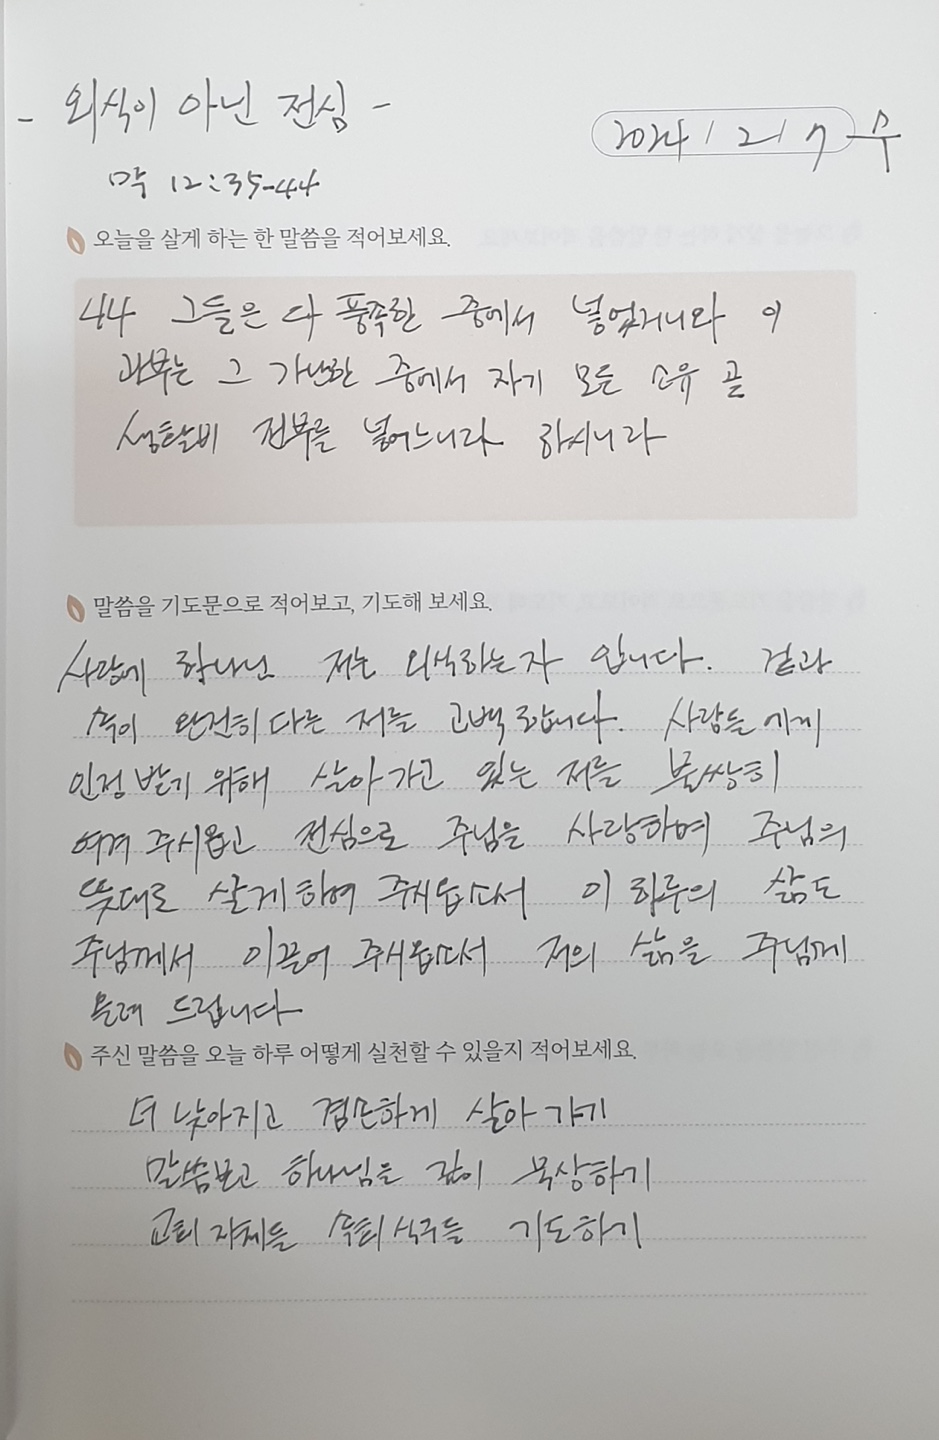 - 외식이 아닌 전심 -
2024 / 2 / 7 수
막 12:35-44
오늘을 살게 하는 한 말씀을 적어보세요.
44 그들은 다 풍족한 중에서 넣었거니와 이
과부는 그 가난한 중에서 자기 모든 소유 곧
생활비 전부를 넣어느니라 하시니라
말씀을 기도문으로 적어보고, 기도해 보세요.
하나님 저는 외식하는자 입니다. 겉과
속이 완전히 다른 저를 고백합니다. 사람들에게
인정 받기 위해 살아가고 있는 저를 불쌍히
여겨 주시옵고 전심으로 주님을 사랑하며 주님의
뜻대로 살게하여 주시옵소서 이 하루의 삶도
주님께서 이끌어 주시옵소서 저의 삶을 주님께
올려 드립니다
주신 말씀을 오늘 하루 어떻게 실천할 수 있을지 적어보세요.
더 낮아지고 겸손하게 살아가기
말씀보고 하나님을 깊이 묵상하기
교회 지체들 식구들 기도하기